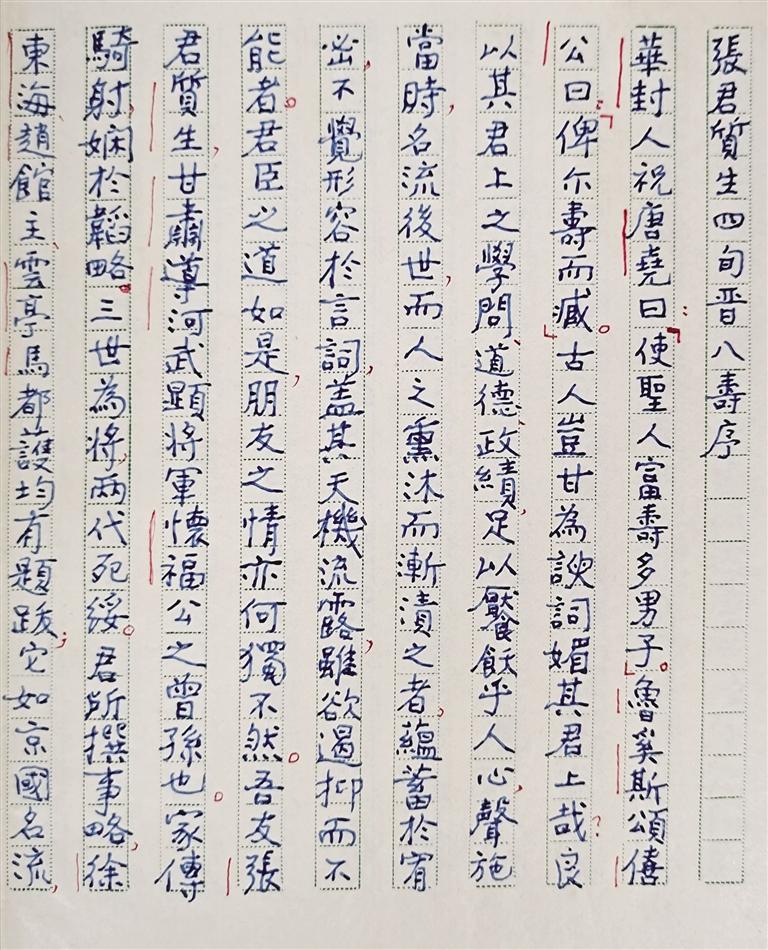 張君質生四旬晋八壽序
華封人祝唐堯曰：「使聖人富壽多男子」。魯奚斯頌僖
公曰：「俾尔壽而臧」。古人豈甘為諛詞媚其君上哉？良
以其君上之學問、道德、政績，足以饜飫乎人心，聲施
當時，名流後世，而人之熏沐而漸漬之者，蘊蓄於宥
密，不覺形容於言詞，蓋其天機流露，雖欲遏抑而不
能者。君臣之道如是，朋友之情亦何獨不然。吾友張
君質生，甘肅導河武顯將軍懷福公之曾孫也。家傳
騎射，嫻於韜略。三世為將，兩代死綏。君所撰事略，徐
東海趙館主、雲亭馬都護均有題跋；它如京國名流，